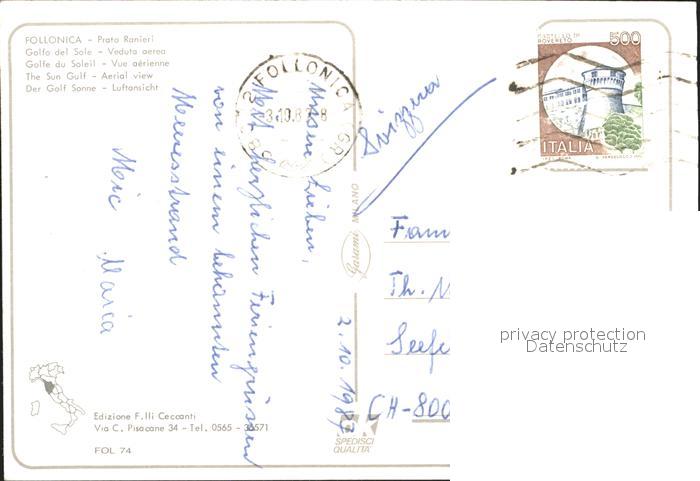 FOLLONICA - Prato Ranieri
Golfo del Sole - Veduta aerea
Golfe du Soleil - Vue aérienne
The Sun Gulf - Aerial view
Der Golf Sonne - Luftansicht
FOLLONICA (GR)
CASTELLO DI
ROVERETO
500
ITALIA
Svizzera
2.10.1987
Unsere Lieben,
Mit herzlichen Feriengrüssen
von einem bekannten
Meeresstrand
Maria
MILANO
Fam
Th.
Seefe
CH-800
SPEDISCI
QUALITA'
Edizione F.lli Ceccanti
Via C. Pisacane 34 - Tel. 0565 -
FOL 74
privacy protection
Datenschutz